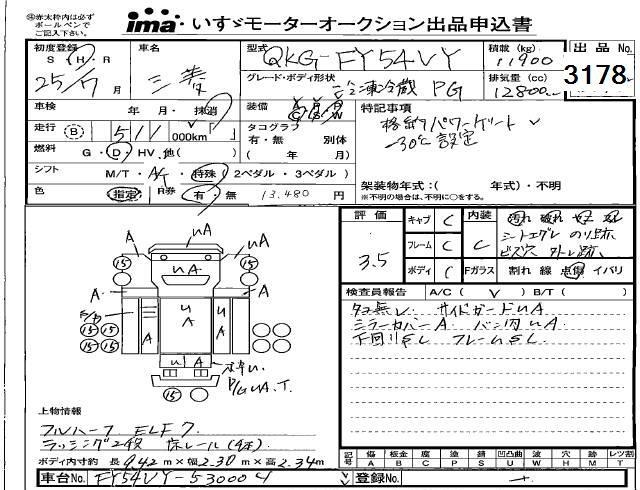 ㊟赤太枠内は必ず
ボールペンで
ご記入下さい。
ima いすゞモーターオークション出品申込書
初度登録 S H R 25 7月
車名 三菱
型式 QKG-FY54VY
グレード・ボディ形状 冷凍冷蔵 PG
積載 (kg) 11900
排気量 (cc) 12800
出品 No. 3178
車検 年 月・抹消
装備 A P A C S W
特記事項
格納パワーゲート
-30℃設定
走行 B 51 000km
タコグラフ 有・無 別体
( 年 月)
燃料 G・D・HV.他( )
シフト M/T・A/T 特殊 (2ペダル・3ペダル)
架装物年式:( 年式)・不明
※不明の場合は、不明に○をする。
色 指定 R券 有・無 13,480 円
評価 3.5
キャブ C
フレーム C
ボディ C
内装 C
シートエグレ のり跡
ビス穴 外トレ跡
Fガラス 割れ 線 点傷 イバリ
検査員報告 A/C( ∨ ) B/T( )
タコ無し サイドガードUA
ミラーカバーA バン内UA
下回りSL フレームSL
A UA
15 15
UA
A A
U A U A
15 15 15 15
U A A
P/G UA.T.
15
上物情報
フルハーフ ELF7
ラッシング2段 床レール(4本)
ボディ内寸約 長 9.42 m×巾 2.30 m×高 2.34 m
記号 傷 A 板金 B 腐 C 塗 P 錆 S 凹凸曲 U 波 W 穴 H 跡 M 欠 T レツ割
車台No. FY54VY-530004
登録No.